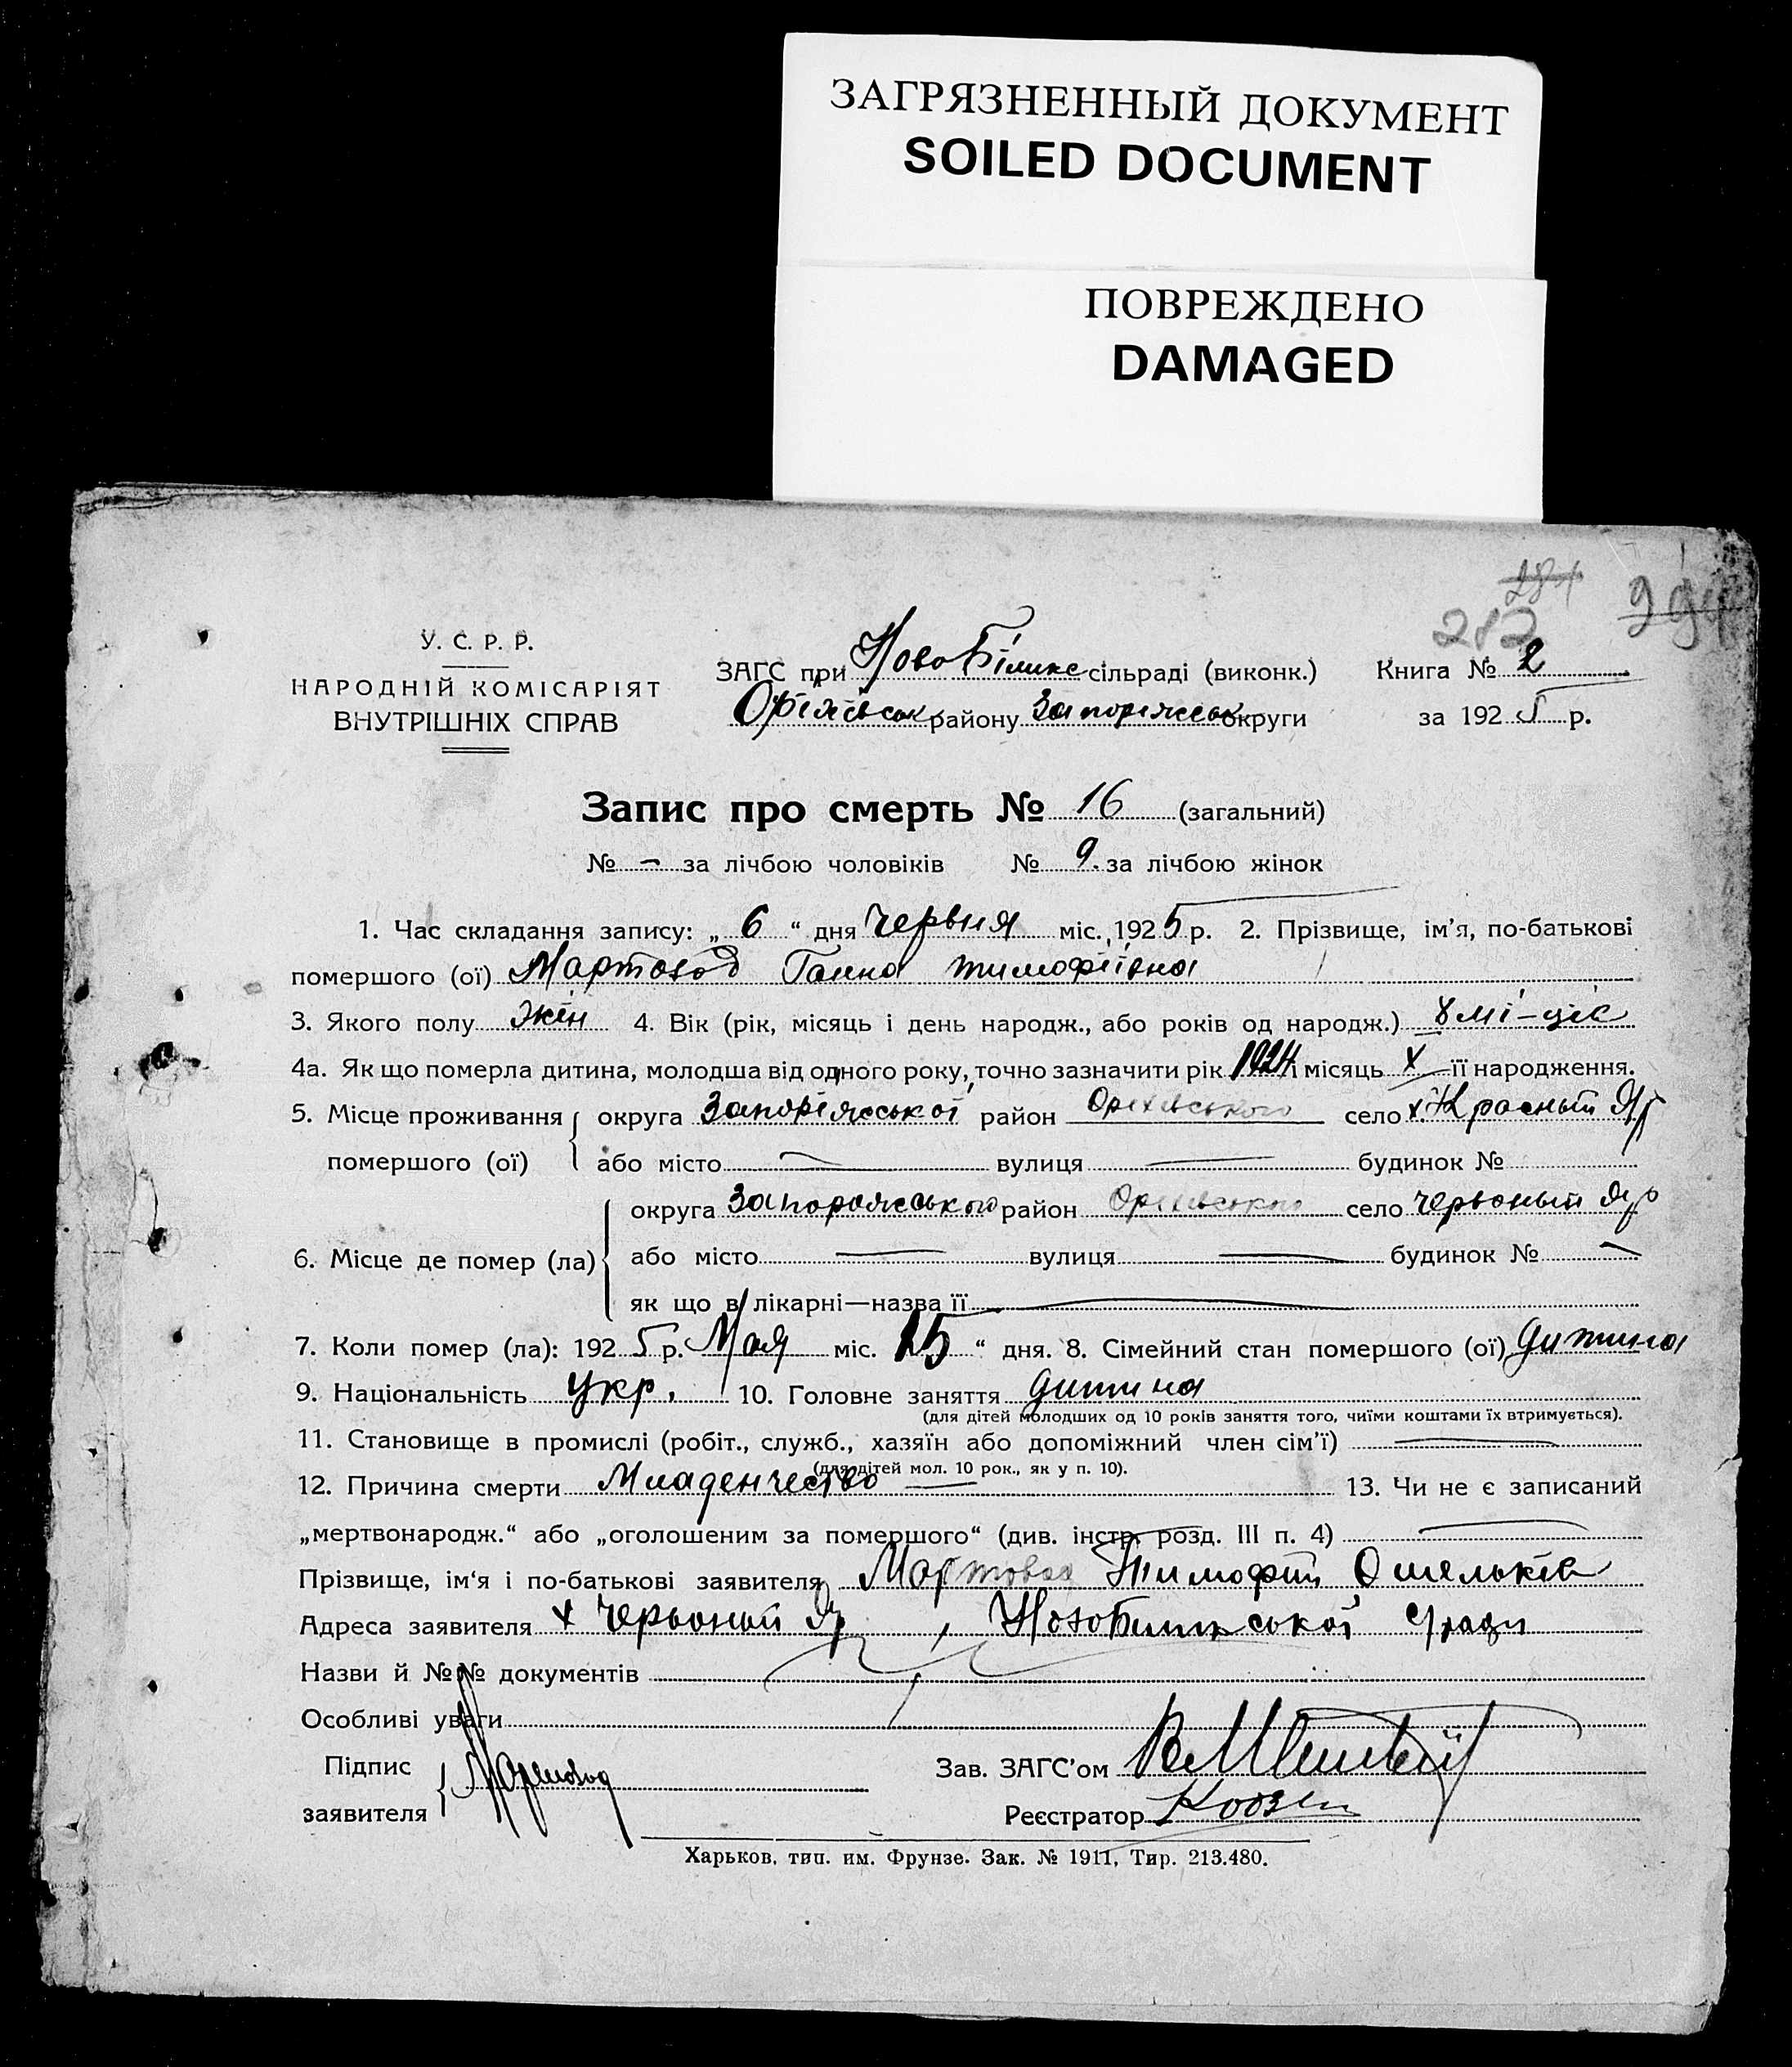 ЗАГРЯЗНЕННЫЙ ДОКУМЕНТ
SOILED DOCUMENT
ПОВРЕЖДЕНО
DAMAGED
284
212
У. С. Р. Р.
НАРОДНІЙ КОМІСАРІЯТ
ВНУТРІШНІХ СПРАВ
ЗАГС при Ново Білинк сільраді (виконк.) Книга № 2
Оріхівськ району Запоріжськ округи за 1925 р.
Запис про смерть № 16 (загальний)
№ — за лічбою чоловіків № 9. за лічбою жінок
1. Час складання запису: „ 6 “ дня Червня міс. 1925 р. 2. Прізвище, ім’я, по-батькові
помершого (ої) Мартовод Ганна тимофіївна
3. Якого полу жін 4. Вік (рік, місяць і день народж., або років од народж.) 8 мі-ців
4а. Як що померла дитина, молодша від одного року, точно зазначити рік 1924 і місяць X її народження.
5. Місце проживання округа Запоріжської район Оріхівського село х. Красный Яр
помершого (ої) або місто — вулиця — будинок №
округа Запорожського район Оріхівського село Червоный Яр
6. Місце де помер (ла) або місто — вулиця — будинок № —
як що в лікарні—назва її —
7. Коли помер (ла): 1925 р. Мая міс. 15 “ дня. 8. Сімейний стан помершого (ої) дитина
9. Національність Укр. 10. Головне заняття дитина
(для дітей молодших од 10 років заняття того, чиїми коштами їх втримується).
11. Становище в промислі (робіт., служб., хазяїн або допоміжний член сім’ї) —
(для дітей мол. 10 рок., як у п. 10).
12. Причина смерти Младенчество — 13. Чи не є записаний
„мертвонародж.“ або „оголошеним за помершого“ (див. інстр. розд. III п. 4) —
Прізвище, ім‘я і по-батькові заявителя Мартовод Тимофій Омельків
Адреса заявителя х Червоный Яр, Ново ської ради
Назви й №№ документів
Особливі уваги
Підпис
заявителя Мартовод
Зав. ЗАГС’ом
Реєстратор
Харьков, тип. им. Фрунзе. Зак. № 1911, Тир. 213.480.